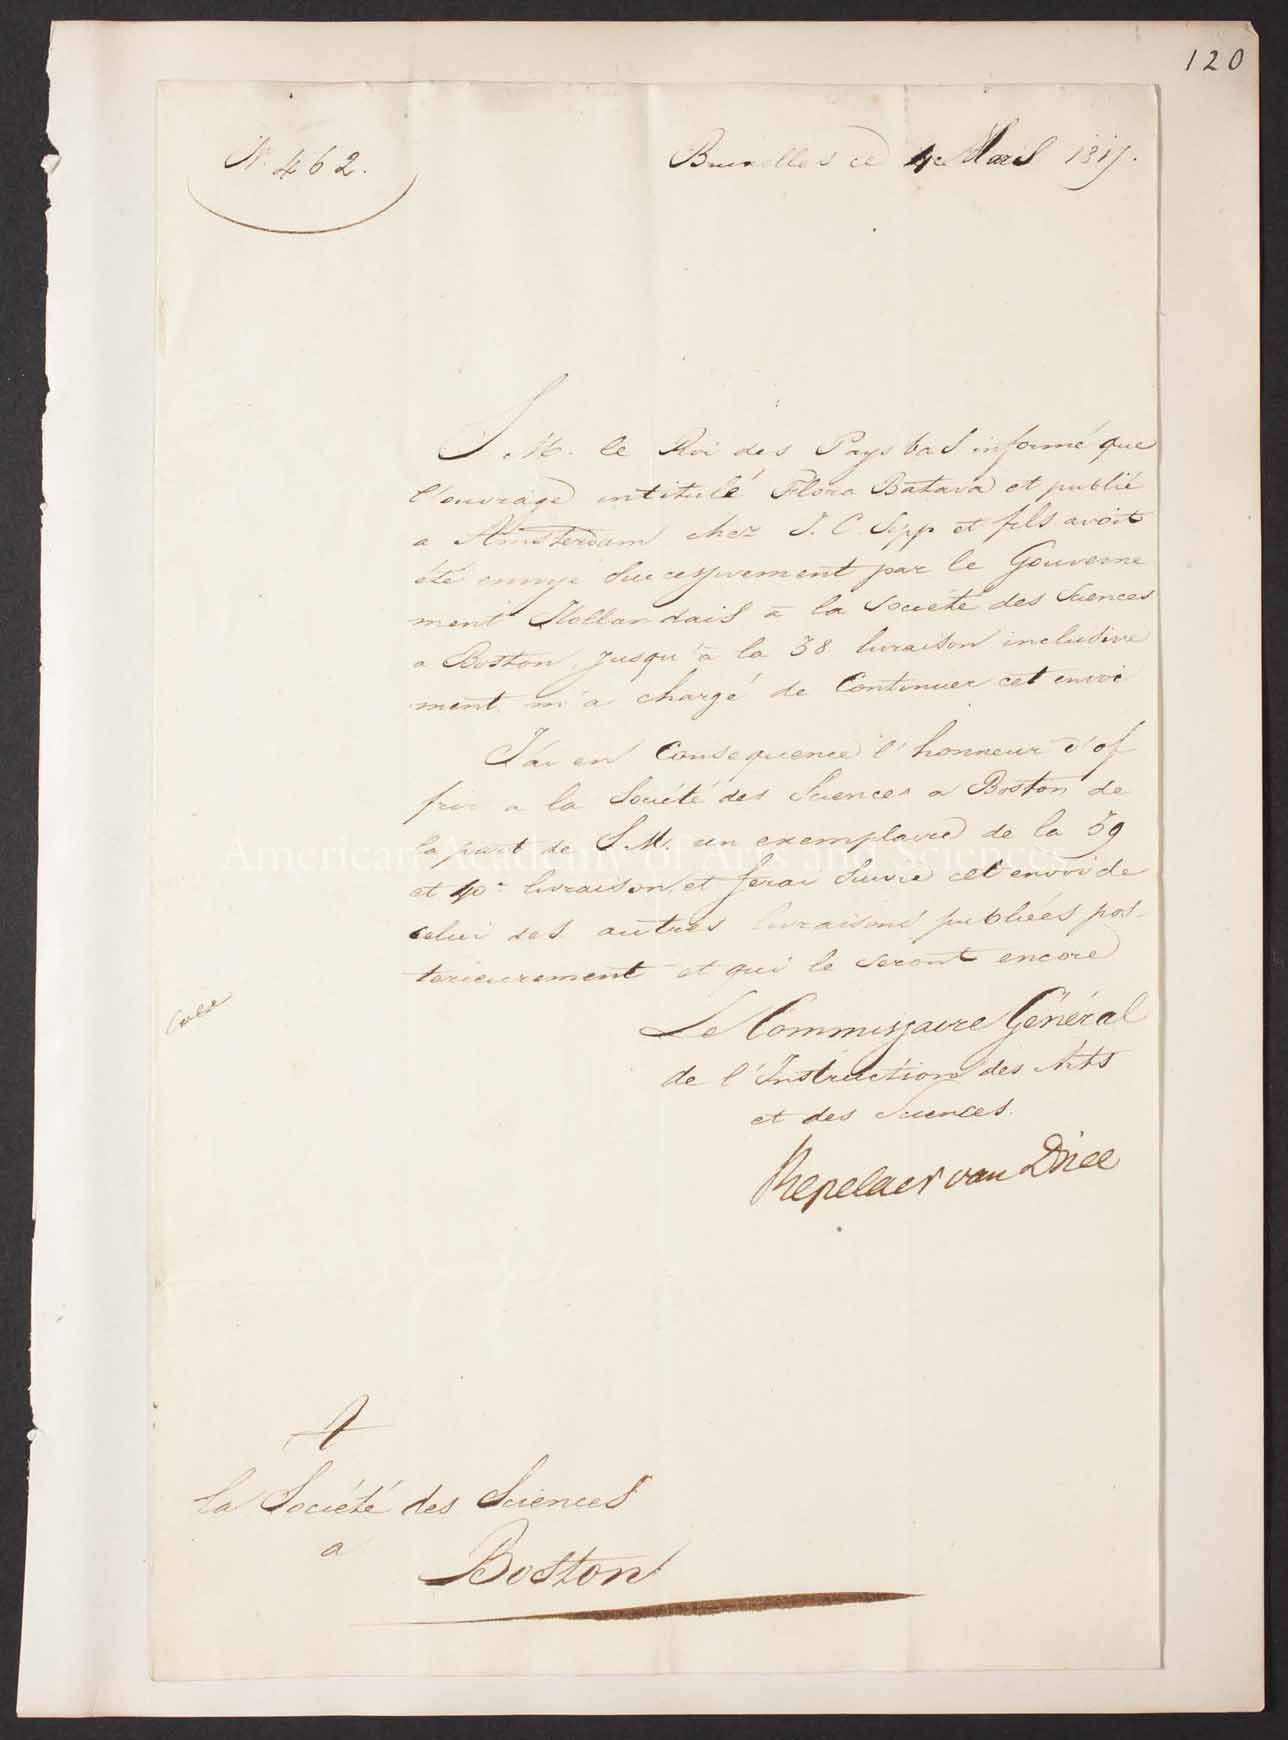 120
N.º 462.
Bruxelles ce 4 Mars 1817.
S. M. le Roi des Pays bas informé que
l'ouvrage intitulé Flora Batava et publié
a Amsterdam chez J. C. Sepp et fils avoit
été envoyé successivement par le Gouverne
ment Hollandais à la Société des Sciences
a Boston jusqu'à la 38 livraison inclusive
ment m'a chargé de Continuer cet envoi
J'ai en Consequence l'honneur d'of
frir a la Société des Sciences a Boston de
la part de S. M. un exemplaire de la 39
et 40e livraison et ferai suivre cet envoi de
celui des autres livraisons publiées pos-
terieurement et qui le seront encore
Le Commissaire Général
de l'Instruction des Arts
et des Sciences.
Repelaer van Driel
A
la Société des Sciences
a
Boston
American Academy of Arts and Sciences